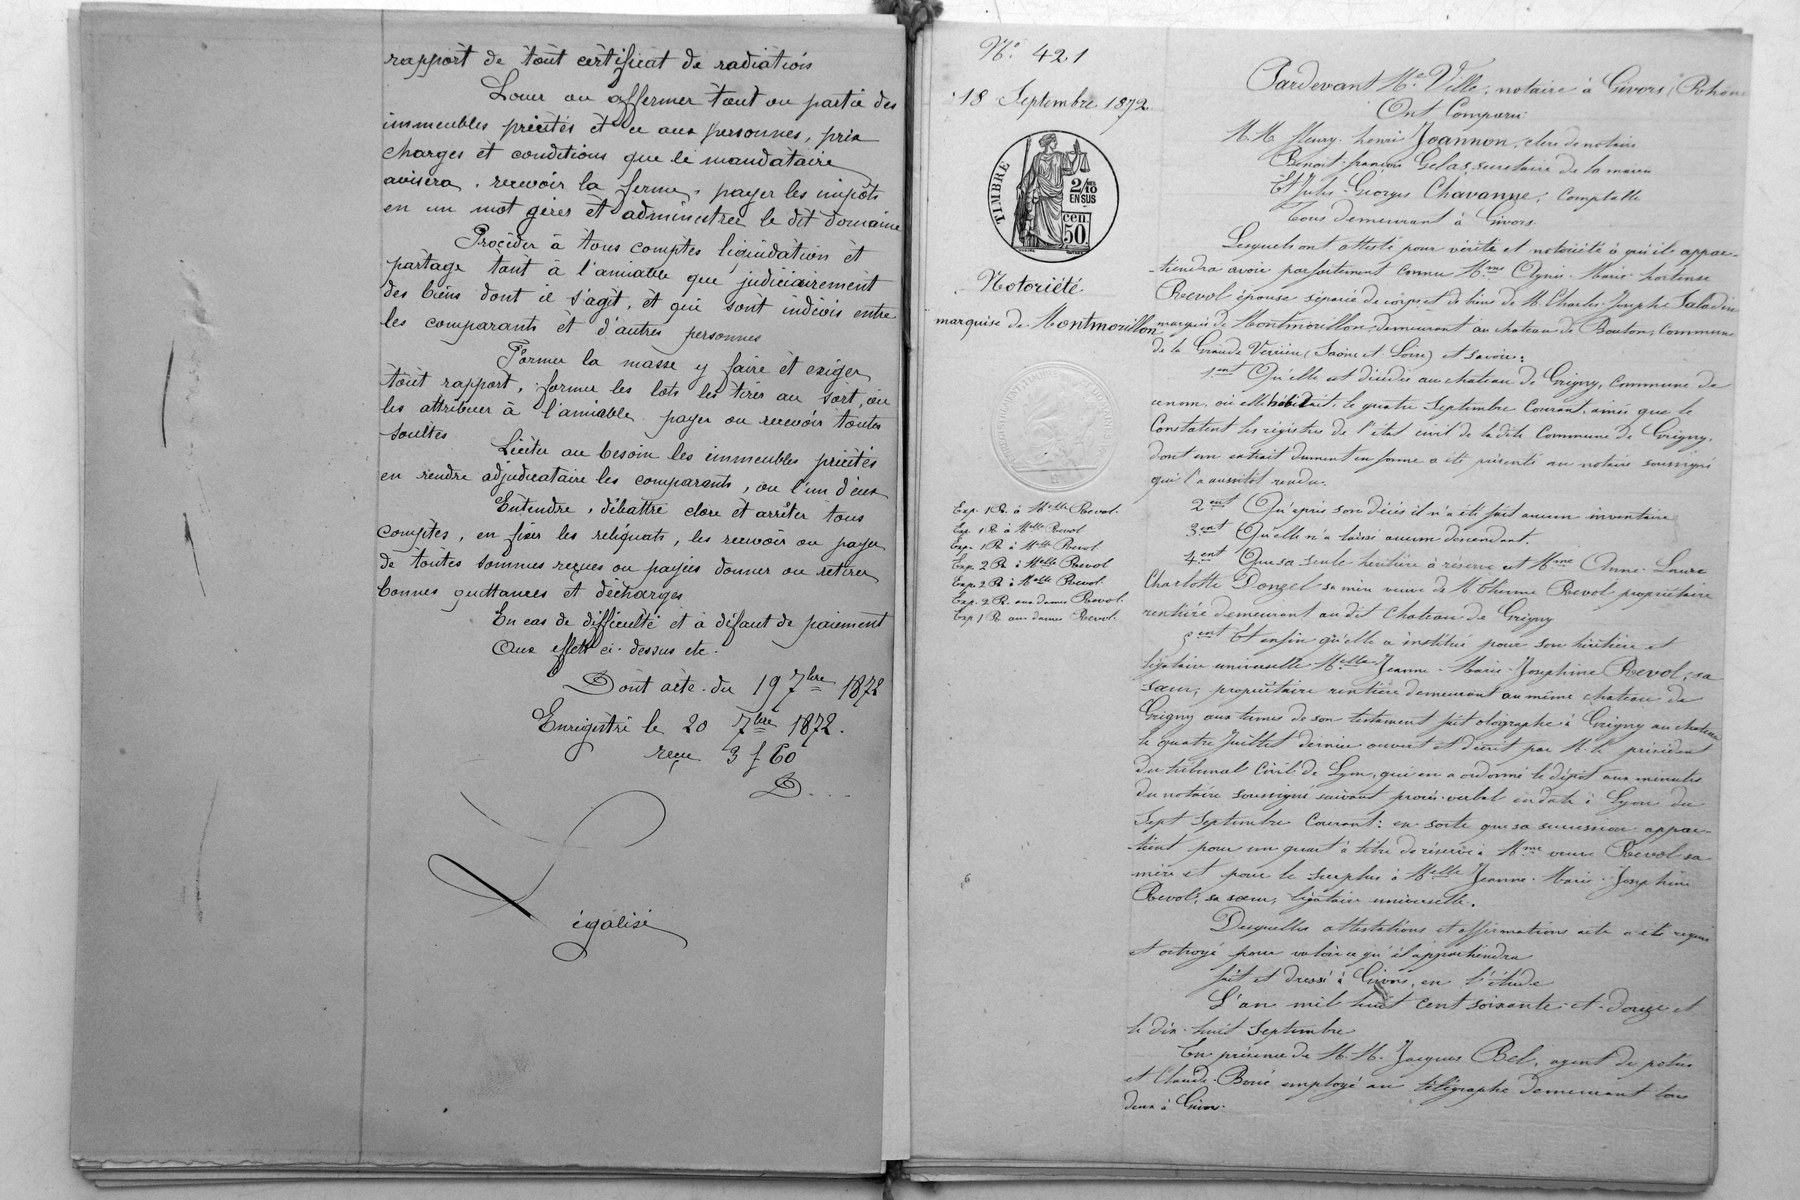 rapport de tout certificat de radiation
Louer ou affermer tout ou partie des
immeubles précités et ce aux personnes, prix
charges et conditions que le mandataire
avisera, recevoir la ferme, payer les impôts
en un mot gérer et administrer le dit domaine
Procéder à tous comptes liquidation et
partage tant à l'amiable que judiciairement
des biens dont il s'agit, et qui sont indivis entre
les comparants et d'autres personnes
Former la masse y faire et exiger
tout rapport, former les lots les tirer au sort, ou
les attribuer à l'amiable payer ou recevoir toutes
soultes
Liciter au besoin les immeubles précités
en rendre adjudicataire les comparants, ou l'un d'eux
Entendre, débattre clore et arrêter tous
comptes, en fixer les reliquats, les recevoir ou payer
de toutes sommes reçues ou payées donner ou retirer
bonnes quittances et décharges
En cas de difficulté et à défaut de paiement
Aux effets ci-dessus etc.
Dont acte. du 19 7bre 1872
Enregistré le 20 7bre 1872.
reçu 3 f 60
D....
égalisé
No. 421
18 Septembre 1872.
TIMBRE
2/10
EN SUS
cen.
50.
Notoriété
marquise de Montmorillon
Exp. 1 R. à Melle Revol.
Exp. 1 R à Melle Revol
Exp. 1 R à Melle Revol
Exp. 2 R à Melle Revol
Exp. 2 R à Melle Revol.
Exp. 2 R. aux dames Revol.
Exp 1 R aux dames Revol.
Pardevant Me Ville, notaire à Givors, Rhône
Ont Comparu
M.M. fleury-henri Joannon, clerc de notaire
Benoit-françois Gelas, secrétaire de la mairie
Et Jules-Georges Chavanne, Comptable
Tous demeurant à Givors
Lesquels ont attesté pour vérité et notoriété à qui il appar-
tiendra avoir parfaitement connu Mme Agnès-Marie-hortense
Revol épouse séparée de corps et de biens de M. Charles-Joseph Saladin
marquis de Montmorillon, demeurant au chateau de Bouton, Commune
de la Grande Verrière (Saône et Loire) et savoir:
1ent Qu'elle est décédée au chateau de Grigny, Commune de
ce nom, où elle habitait, le quatre Septembre Courant, ainsi que le
Constatent les registres de l'état civil de ladite Commune de Grigny,
dont un extrait dument en forme a été présenté au notaire soussigné
qui l'a aussitôt rendu.
2ent Qu'après son décès il n'a été fait aucun inventaire
3ent Qu'elle n'a laissé aucun descendant.
4ent Que sa seule héritière à réserve est Mme Anne-Laure
Charlotte Donzel sa mère veuve de M. Etienne Revol propriétaire
rentière demeurant audit Chateau de Grigny
5ent Et enfin qu'elle a institué pour son héritière et
légataire universelle Melle Jeanne-Marie-Joséphine Revol, sa
soeur, propriétaire rentière demeurant au même chateau de
Grigny aux termes de son testament fait olographe à Grigny au chateau
le quatre Juillet dernier ouvert et décrit par M. le président
du tribunal Civil de Lyon, qui en a ordonné le dépôt aux minutes
du notaire soussigné suivant procès-verbal en date à Lyon du
Sept Septembre Courant: en sorte que sa succession appar-
tient pour un quart à titre de réserve à Mme veuve Revol sa
mère et pour le surplus à Melle Jeanne-Marie-Joséphine
Revol, sa soeur, légataire universelle.
Desquelles attestations et affirmations acte a été requis
et octroyé pour valoir ce qu'il appartiendra
fait et dressé à Givors, en l'étude
L'an mil huit cent soixante-et-douze et
le dix-huit Septembre
En présence de M.M. Jacques Bel, agent de police
et Claude employé au télégraphe demeurant tous
deux à Givors.